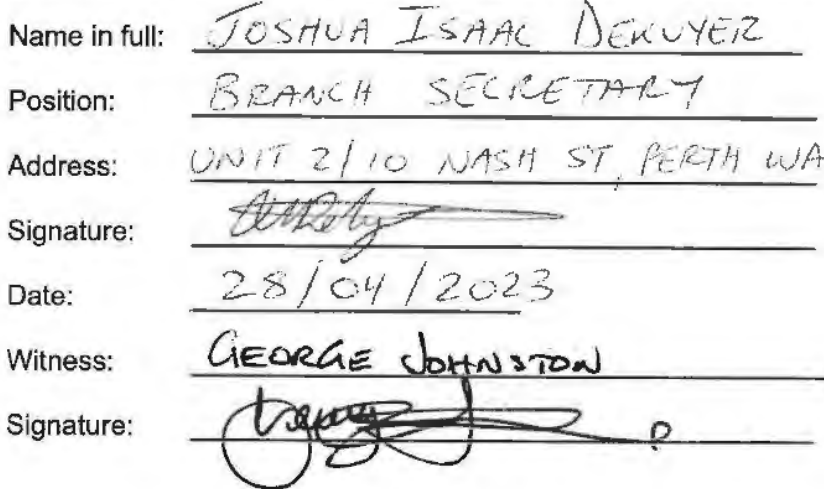 Name in full: JOSHUA ISAAC DEKUYER
Position: BRANCH SECRETARY
Address: UNIT 2/10 NASH ST, PERTH WA
Signature:
Date: 28/04/2023
Witness: GEORGE JOHNSTON
Signature: